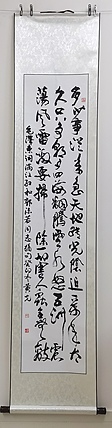 多少事從来急天地转光陰迫一万年太
久只争朝夕四海翻腾雲水怒五洲震
荡風雷激要掃除一切害人虫全無敵
毛澤東词满江红和郭沫若同志